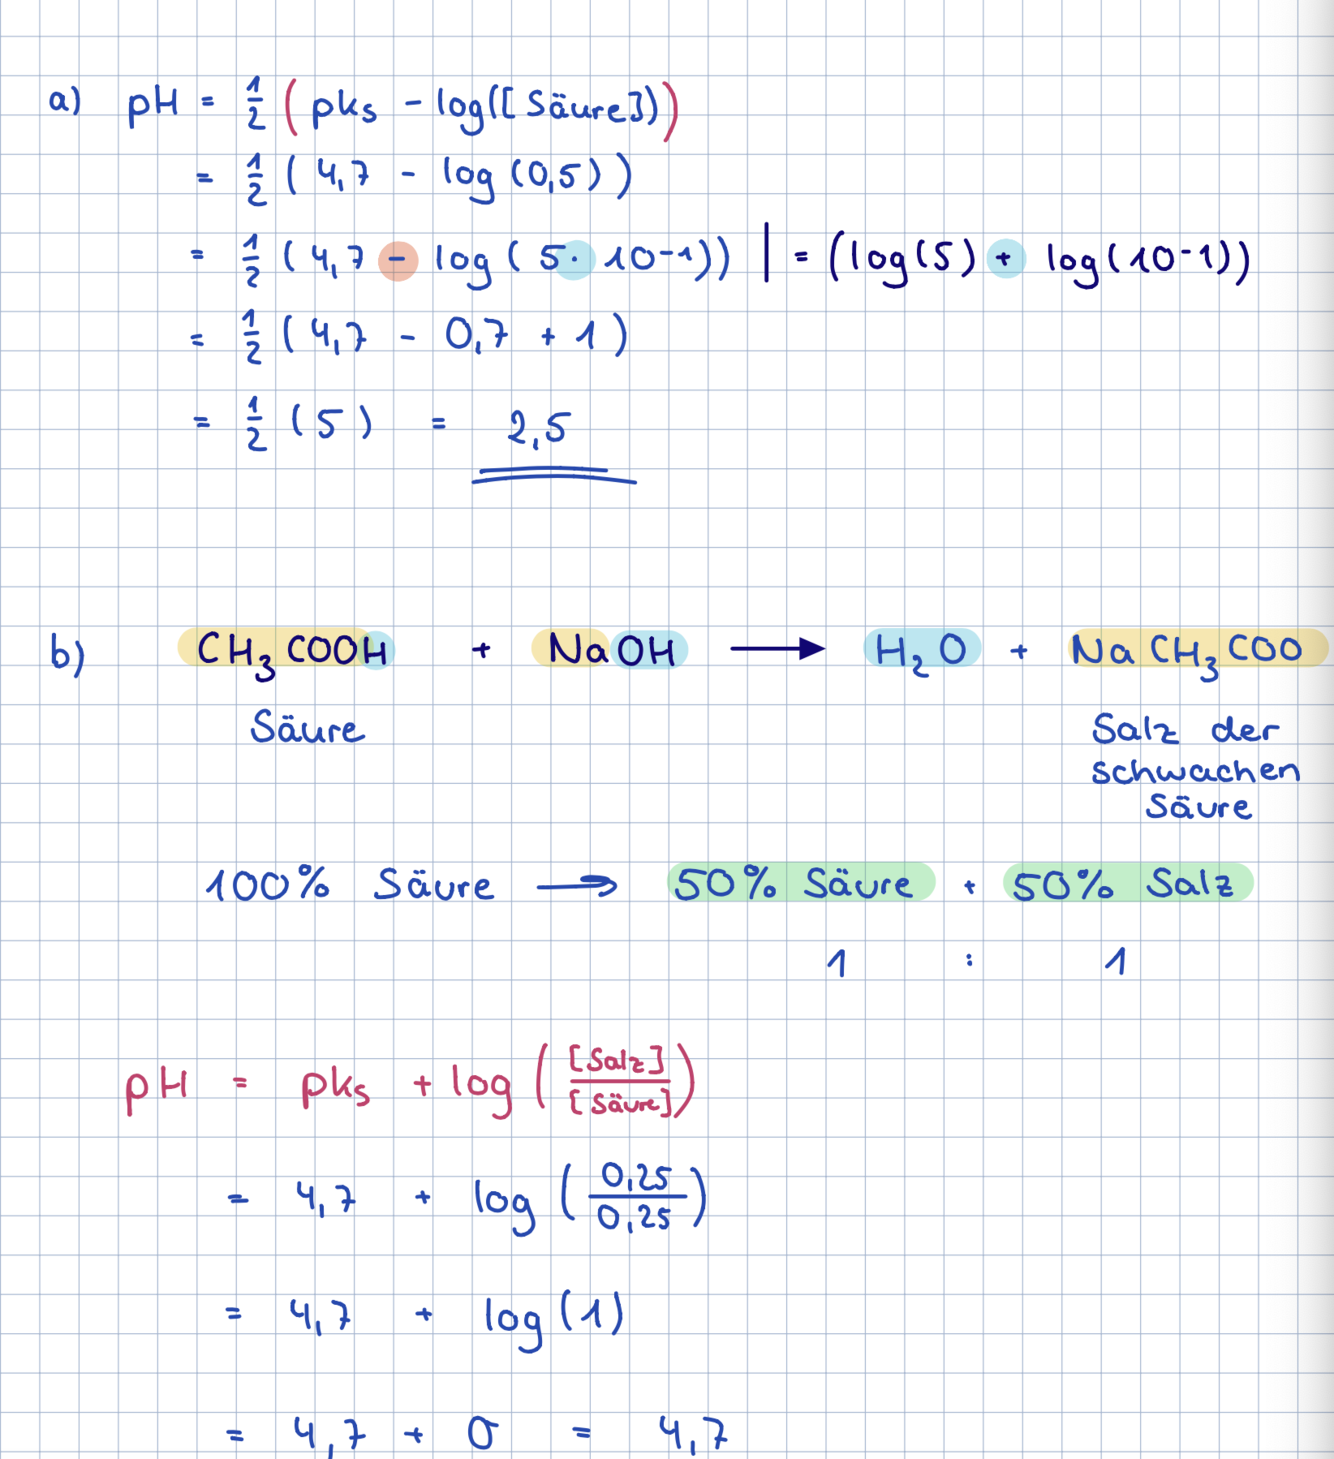 a) pH = 1/2 (pks - log([Säure]))
= 1/2 (4,7 - log (0,5))
= 1/2 (4,7 - log (5 · 10-1)) | = (log(5) + log(10-1))
= 1/2 (4,7 - 0,7 + 1)
= 1/2 (5) = 2,5
b) CH3COOH + NaOH → H2O + NaCH3COO
Säure Salz der
schwachen
Säure
100% Säure → 50% Säure + 50% Salz
1 : 1
pH = pks + log ([Salz]/[Säure])
= 4,7 + log (0,25/0,25)
= 4,7 + log (1)
= 4,7 + 0 = 4,7